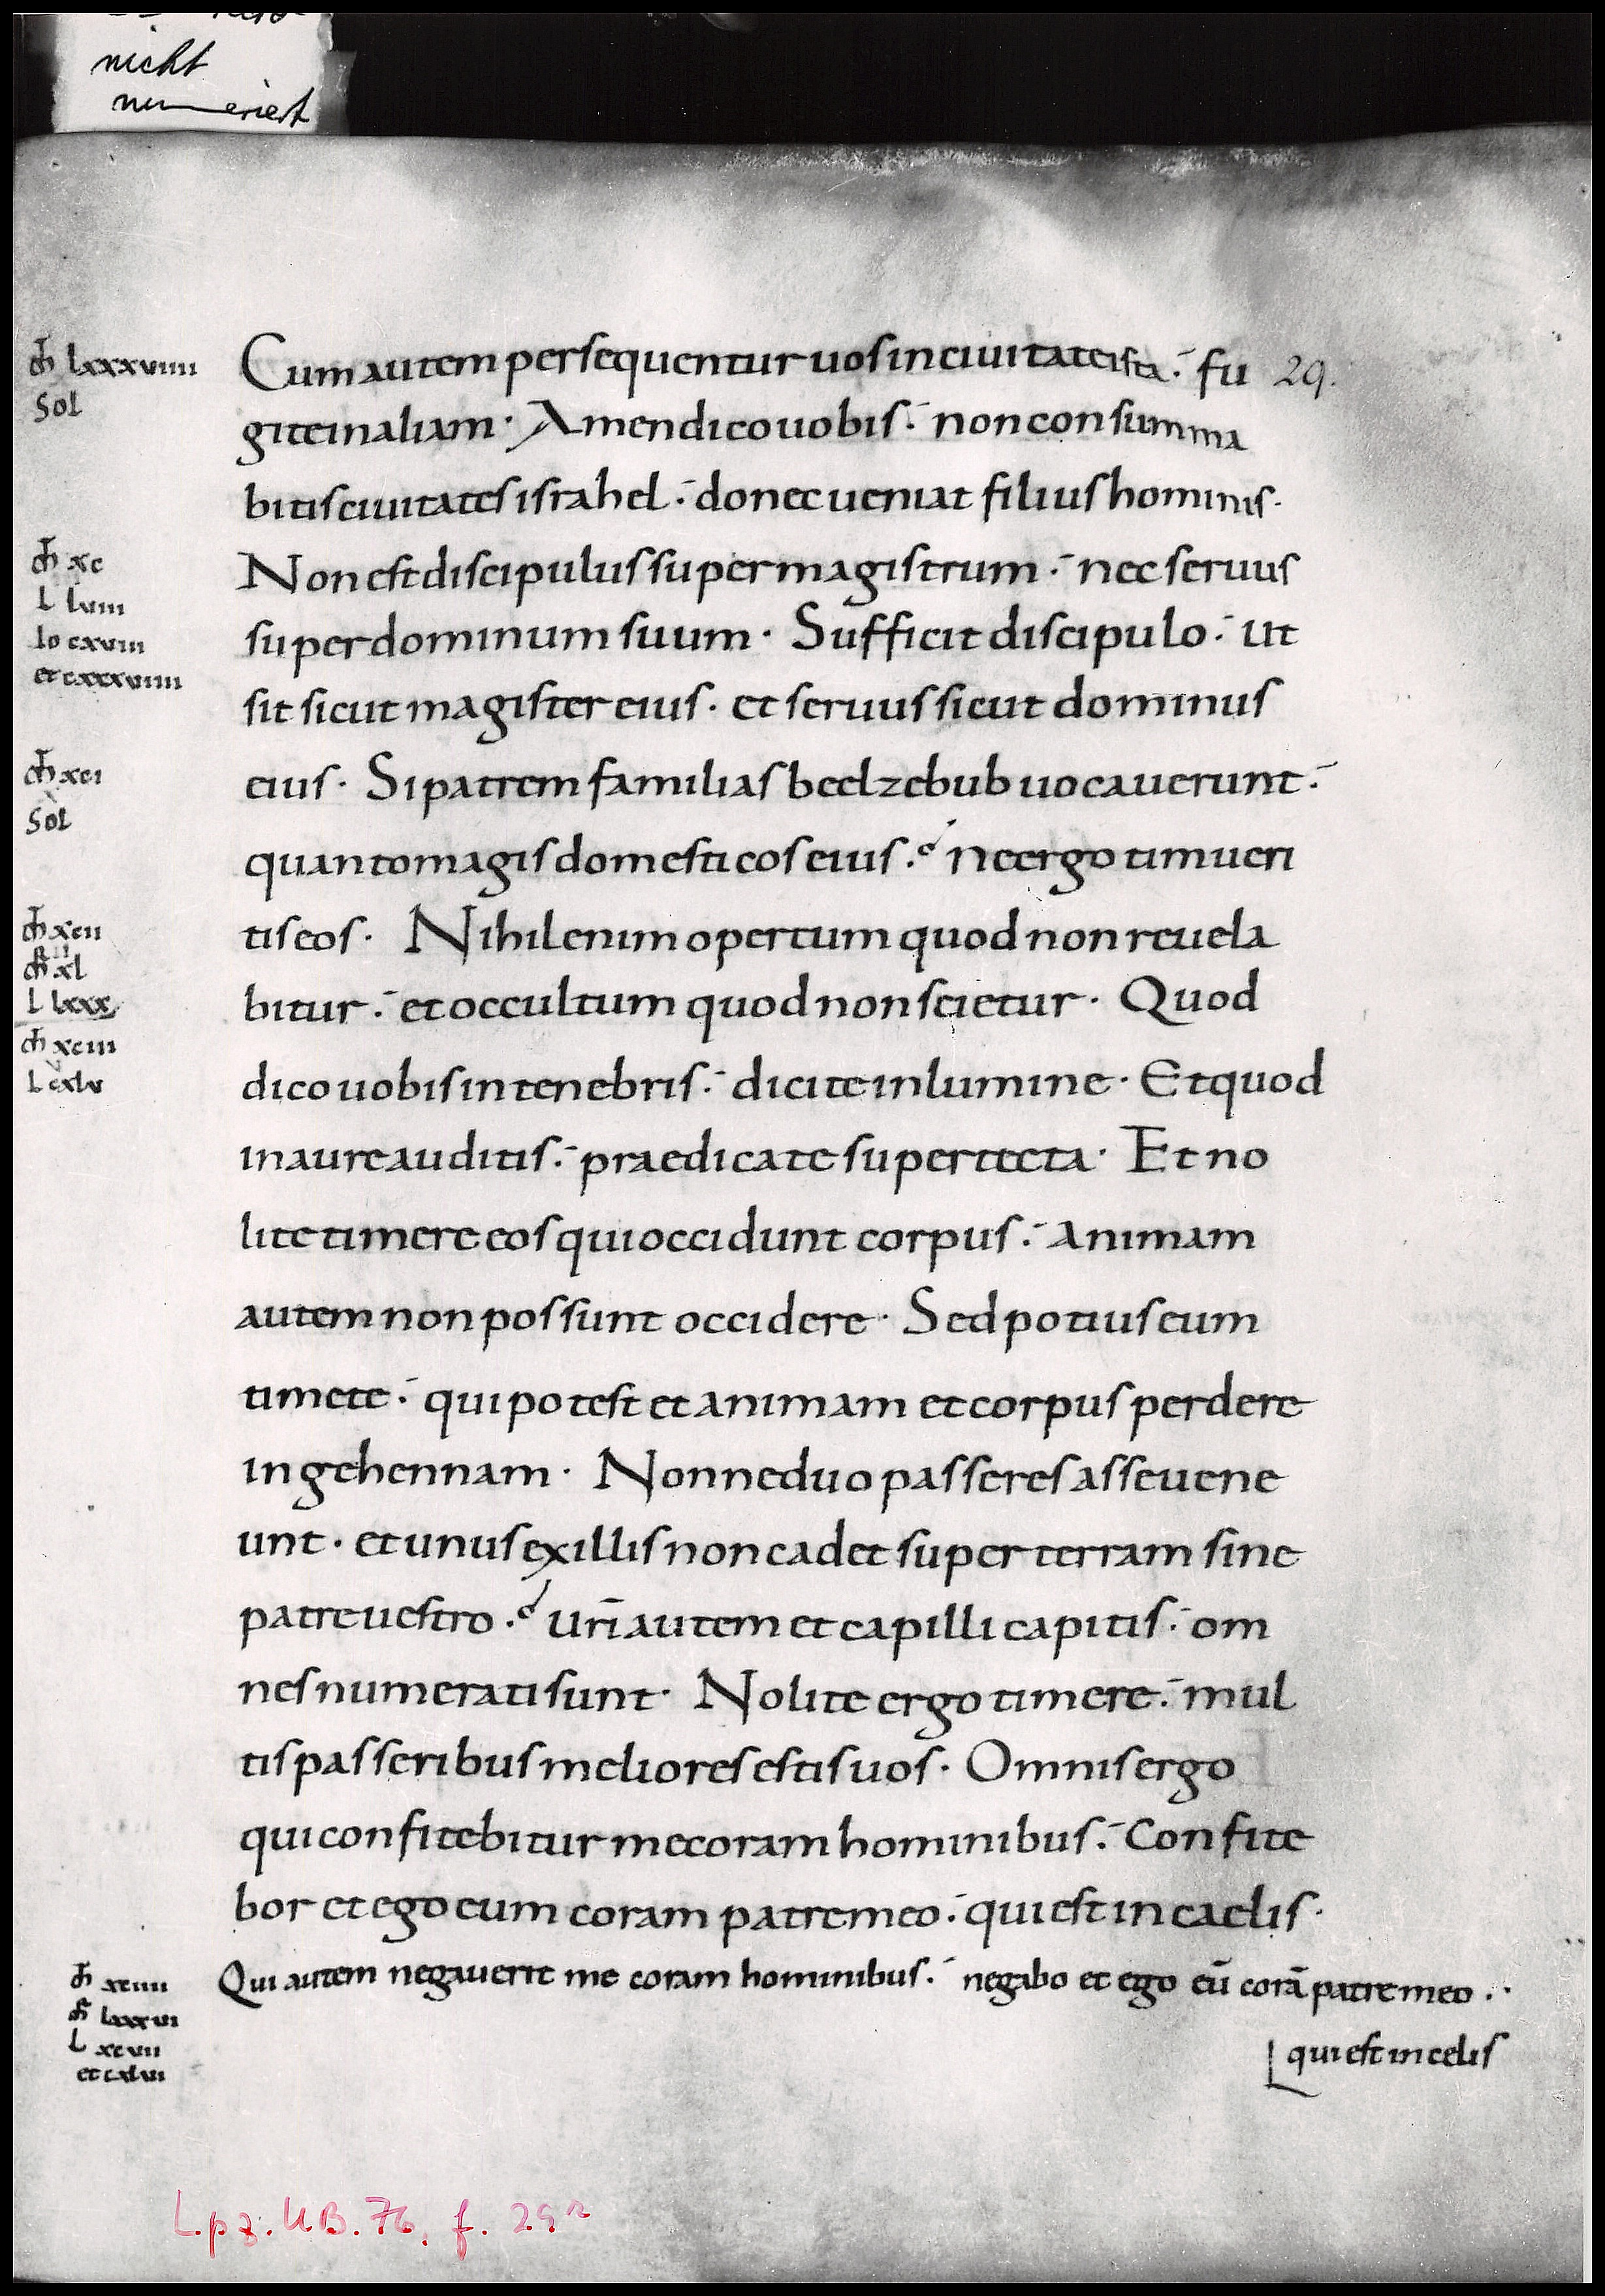 nicht
numeriert
Cum autem persequentur uos in ciuitate ista · fu 29.
gite in aliam · Amen dico uobis · non consumma
bitis ciuitates israhel · donec ueniat filius hominis ·
Non est discipulus super magistrum · nec seruus
super dominum suum · Sufficit discipulo · ut
sit sicut magister eius · et seruus sicut dominus
eius · Si patrem familias beelzebub uocauerunt ·
quanto magis domesticos eius · Ne ergo timueri
tis eos · Nihil enim opertum quod non reuela
bitur · et occultum quod non scietur · Quod
dico uobis in tenebris · dicite in lumine · Et quod
in aure auditis · praedicate super tecta · Et no
lite timere eos qui occidunt corpus · Animam
autem non possunt occidere · Sed potius eum
timete · qui potest et animam et corpus perdere
in gehennam · Nonne duo passeres asse uene
unt · et unus ex illis non cadet super terram sine
patre uestro · Uri autem et capilli capitis · om
nes numerati sunt · Nolite ergo timere · mul
tis passeribus meliores estis uos · Omnis ergo
qui confitebitur me coram hominibus · Confite
bor et ego eum coram patre meo · qui est in caelis ·
Qui autem negauerit me coram hominibus · negabo et ego eū corā patre meo ·
qui est in celis
lxxxviiii
Sol
xc
L lviii
Io cxviii
et cxxxviiii
xci
Sol
xcii
xl
L lxxx
xciii
L cxlv
xciiii
lxxxvi
L xcvii
et cxlvi
Lpz. UB. 76, f. 29r